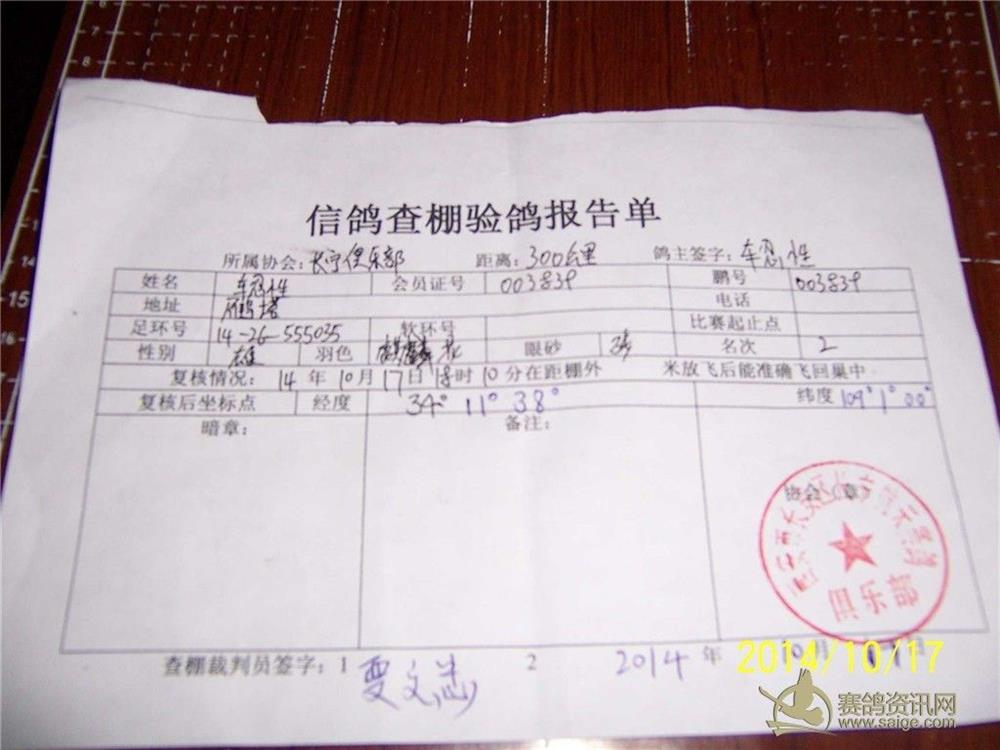 信鸽查棚验鸽报告单
所属协会: 长宁俱乐部 距离: 300公里 鸽主签字: 车忍性
姓名 车忍性 会员证号 003839 鹏号 003839
地址 雁塔 电话
足环号 14-26-555035 软环号 比赛起止点
性别 雄 羽色 花 眼砂 名次 2
复核情况: 14年10月17日18时10分在距棚外 米放飞后能准确飞回巢中
复核后坐标点 经度 34° 11° 38° 纬度 109° 1° 00°
暗章: 备注:
协会（章）
俱乐部
查棚裁判员签字: 1 贾文志 2 2014年10月17日
2014/10/17
赛鸽资讯网
www.saige.com